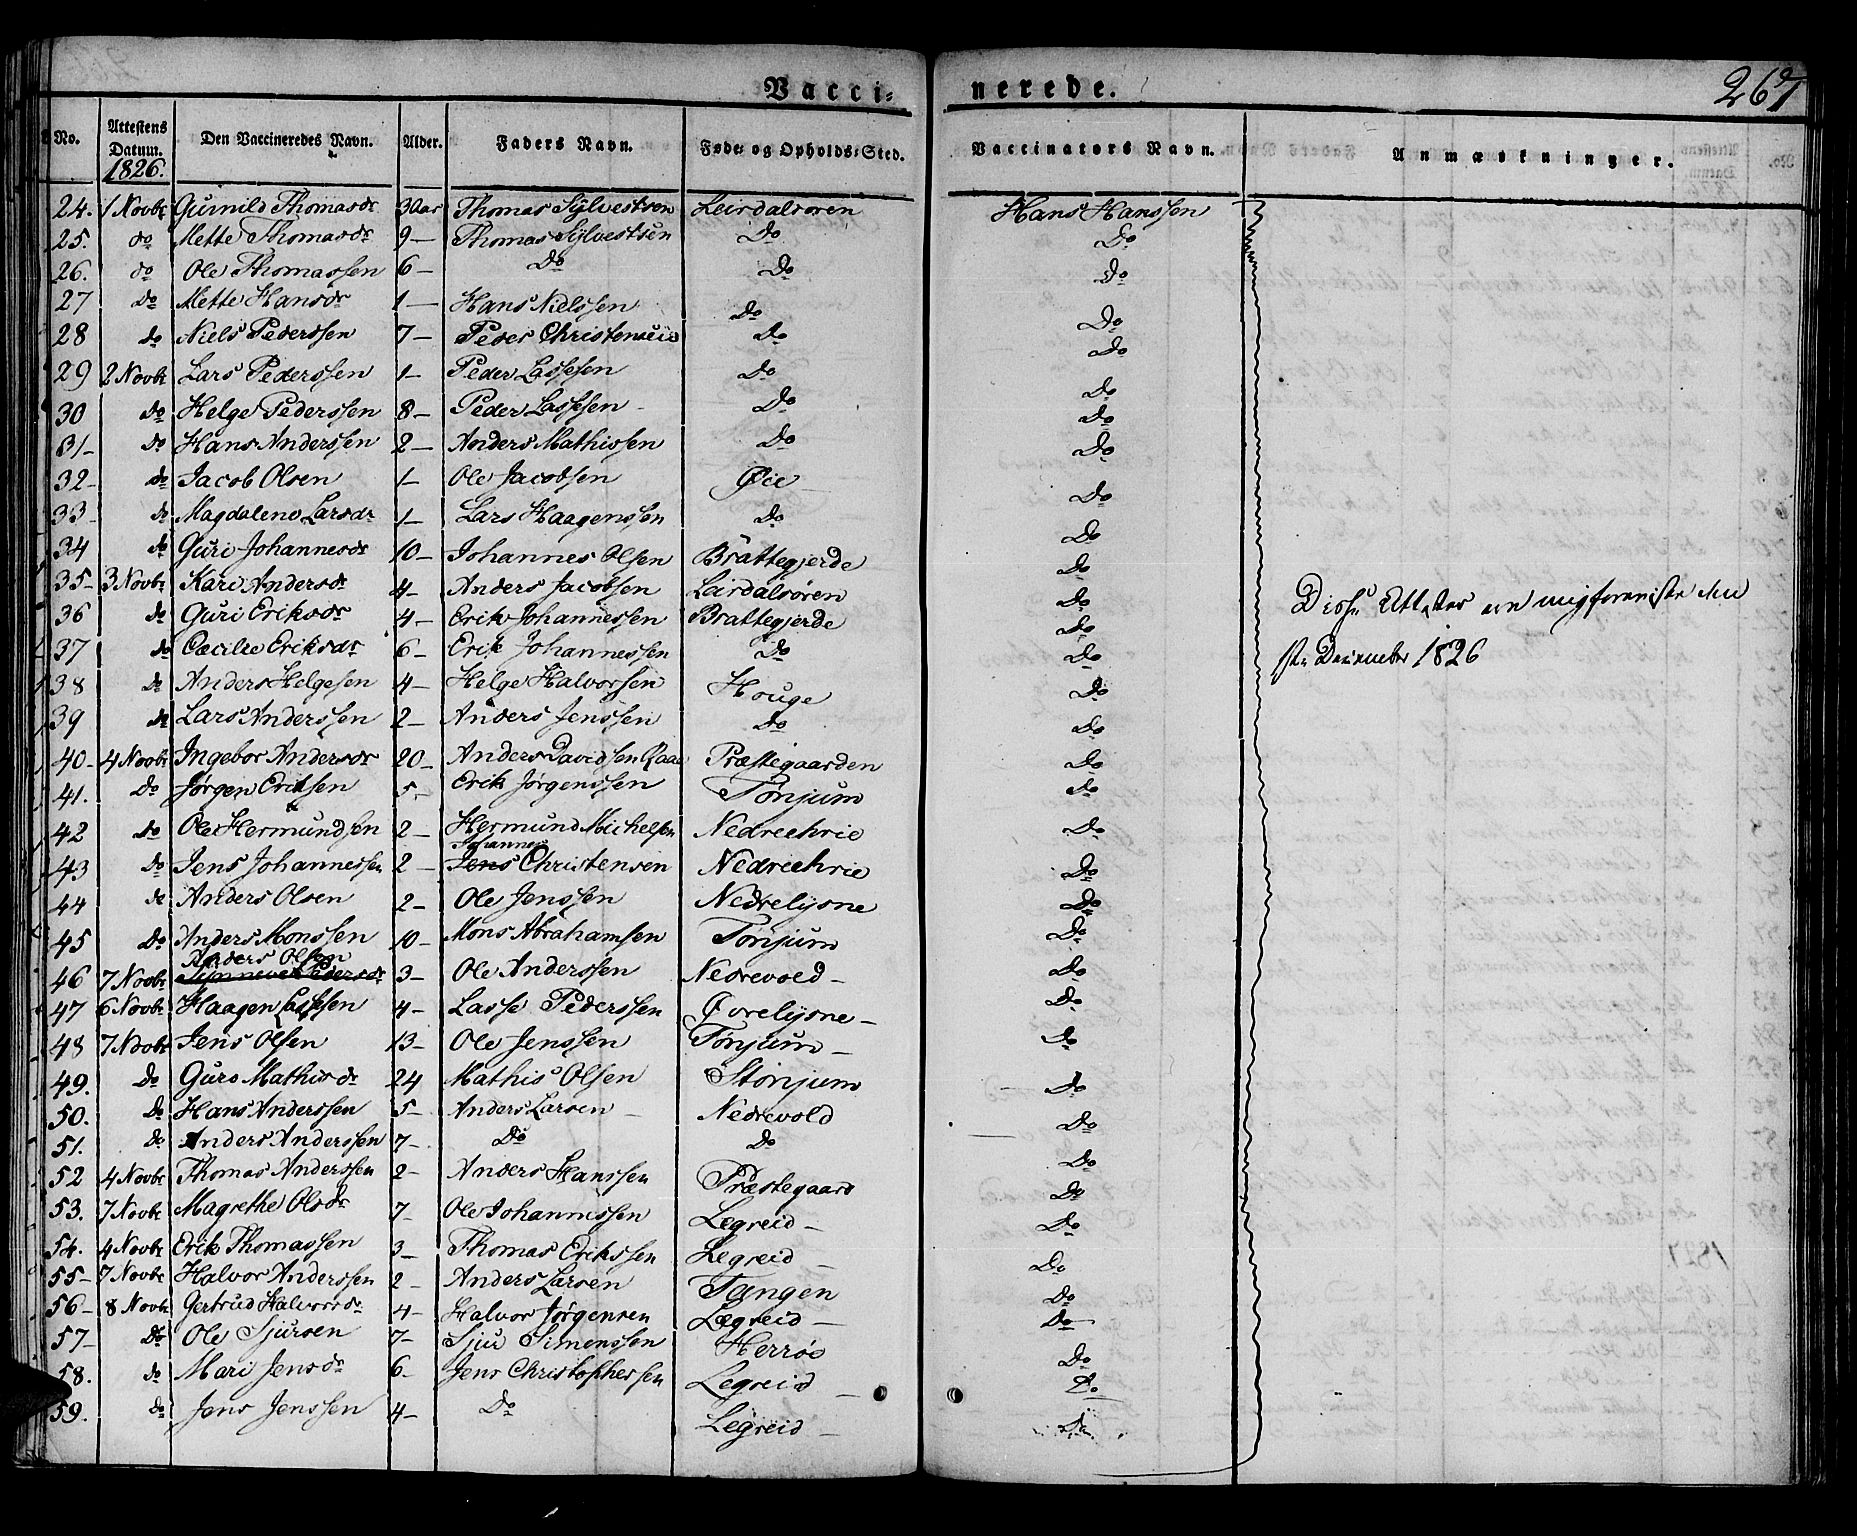 Vacci-nerede.
267
No. Attestens Datum. 1826. Den Vaccineredes Navn. Alder. Faders Navn. Føde- og Opholds-Sted. Vaccinators Navn. Anmærkninger.
24. 1 Novbr Gurnild Thomasdr 30 aar Thomas Sylvestsen Leirdalsøren Hans Hanssen
25. do Mette Thomasdr 9 — Thomas Sylvestsen Do Do
26. do Ole Thomassen 6 — Do Do Do
27 Do Mette Hansdr 1 — Hans Nielssen Do Do
28 do Niels Pederssen 7 — Peder Do Do
29 2 Novbr Lars Pederssen 1 — Peder Lassesen Do Do
30 do Helge Pederssen 8 — Peder Lassesen Do Do
31 — Do Hans Anderssen 2 — Anders Mathissen Do Do
32 — do Jacob Olsen 1 — Ole Jacobsen Øie Do
33 — do Magdalene Larsdr 1 — Lars Haagenssen Do Do
34 do Guri Johannesdr 10 — Johannes Olsen Brattegjerde Do
35 — 3 Novbr Kari Andersdr 4 — Anders Jacobsen Leirdalsøren Do
36 do Guri Eriksdr 4 — Erik Johannessen Brattegjerde Do
37 do Cæcilie Eriksdr 6 — Erik Johannessen Do Do
38 do Anders Helgesen 4 — Helge Halvorsen Houge Do
39 do Lars Anderssen 2 — Anders Jenssen Do Do
40 — 4 Novbr Ingebor Andersdr 20 — Anders Davidsen Præstegaarden Do
41. Do Jørgen Eriksen 5 — Erik Jørgenssen Tonjum Do
42 do Ole Hermundsen 2 — Hermund Michelsen Nedreehrie Do
Johannes
43 Do Jens Johannessen 2 — Jens Christensen Nedreehrie Do
44 do Anders Olsen 2 — Ole Jenssen Nedrelysne Do
45 Do Anders Monssen 10 — Mons Abrahamsen Tonjum Do
Anders Olsen
46 7 Novbr Synneve Pedersdr 3 — Ole Anderssen Nedrevold — Do
47 6 Novbr Haagen Lassesen 4 — Lasse Pederssen Øvrelysne — Do
48 7 Novbr Jens Olsen 13 — Ole Jenssen Tonjum — Do
49. Do Guro Mathisdr 24 Mathis Olsen Stonjum Do
50. Do Hans Anderssen 5 — Anders Larsen — Nedrevold Do
51. do Anders Anderssen 7 — Do do Do
52 4 Novbr Thomas Anderssen 2 — Anders Hanssen Præstegaard Do
53. 7 Novbr Magrethe Olsdr 7 — Ole Johannissen Legreid — Do
54. 4 Novbr Erik Thomassen 3 — Thomas Erikssen Legreid — Do
55 — 7 Novbr Halvor Anderssen 2 — Anders Larsen Tangen Do
56 — 8 Novbr Gertrud Halvorsdr 4 — Halvor Jørgensen Lægreid — Do
57 — Do Ole Sjursen 7 — Sjur Simonssen Herrøe Do
58. do Mari Jensdr 6 — Jens Christophersen Legreid — Do
59. do Jens Jenssen 4 — Do Legreid — Do
Disse Attester ere mig foreviste den
December 1826